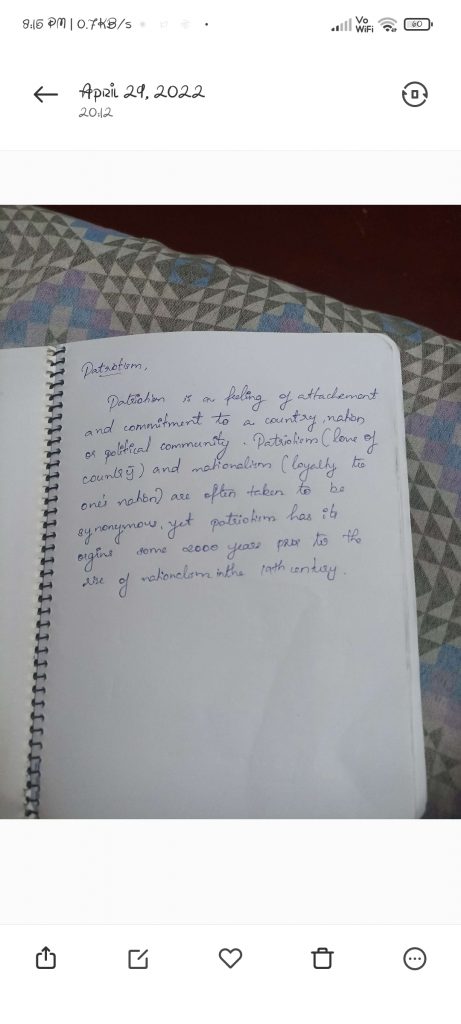 9:16 PM | 0.7KB/s
Vo
WiFi
60
April 29, 2022
20:12
Patriotism,
Patriotism is a feeling of attachement
and commitment to a country, nation
or political community. Patriotism (love of
country) and nationalism (loyalty to
one's nation) are often taken to be
synonymous, yet patriotism has its
orgins some 2000 years prior to the
rise of nationalism in the 19th century.